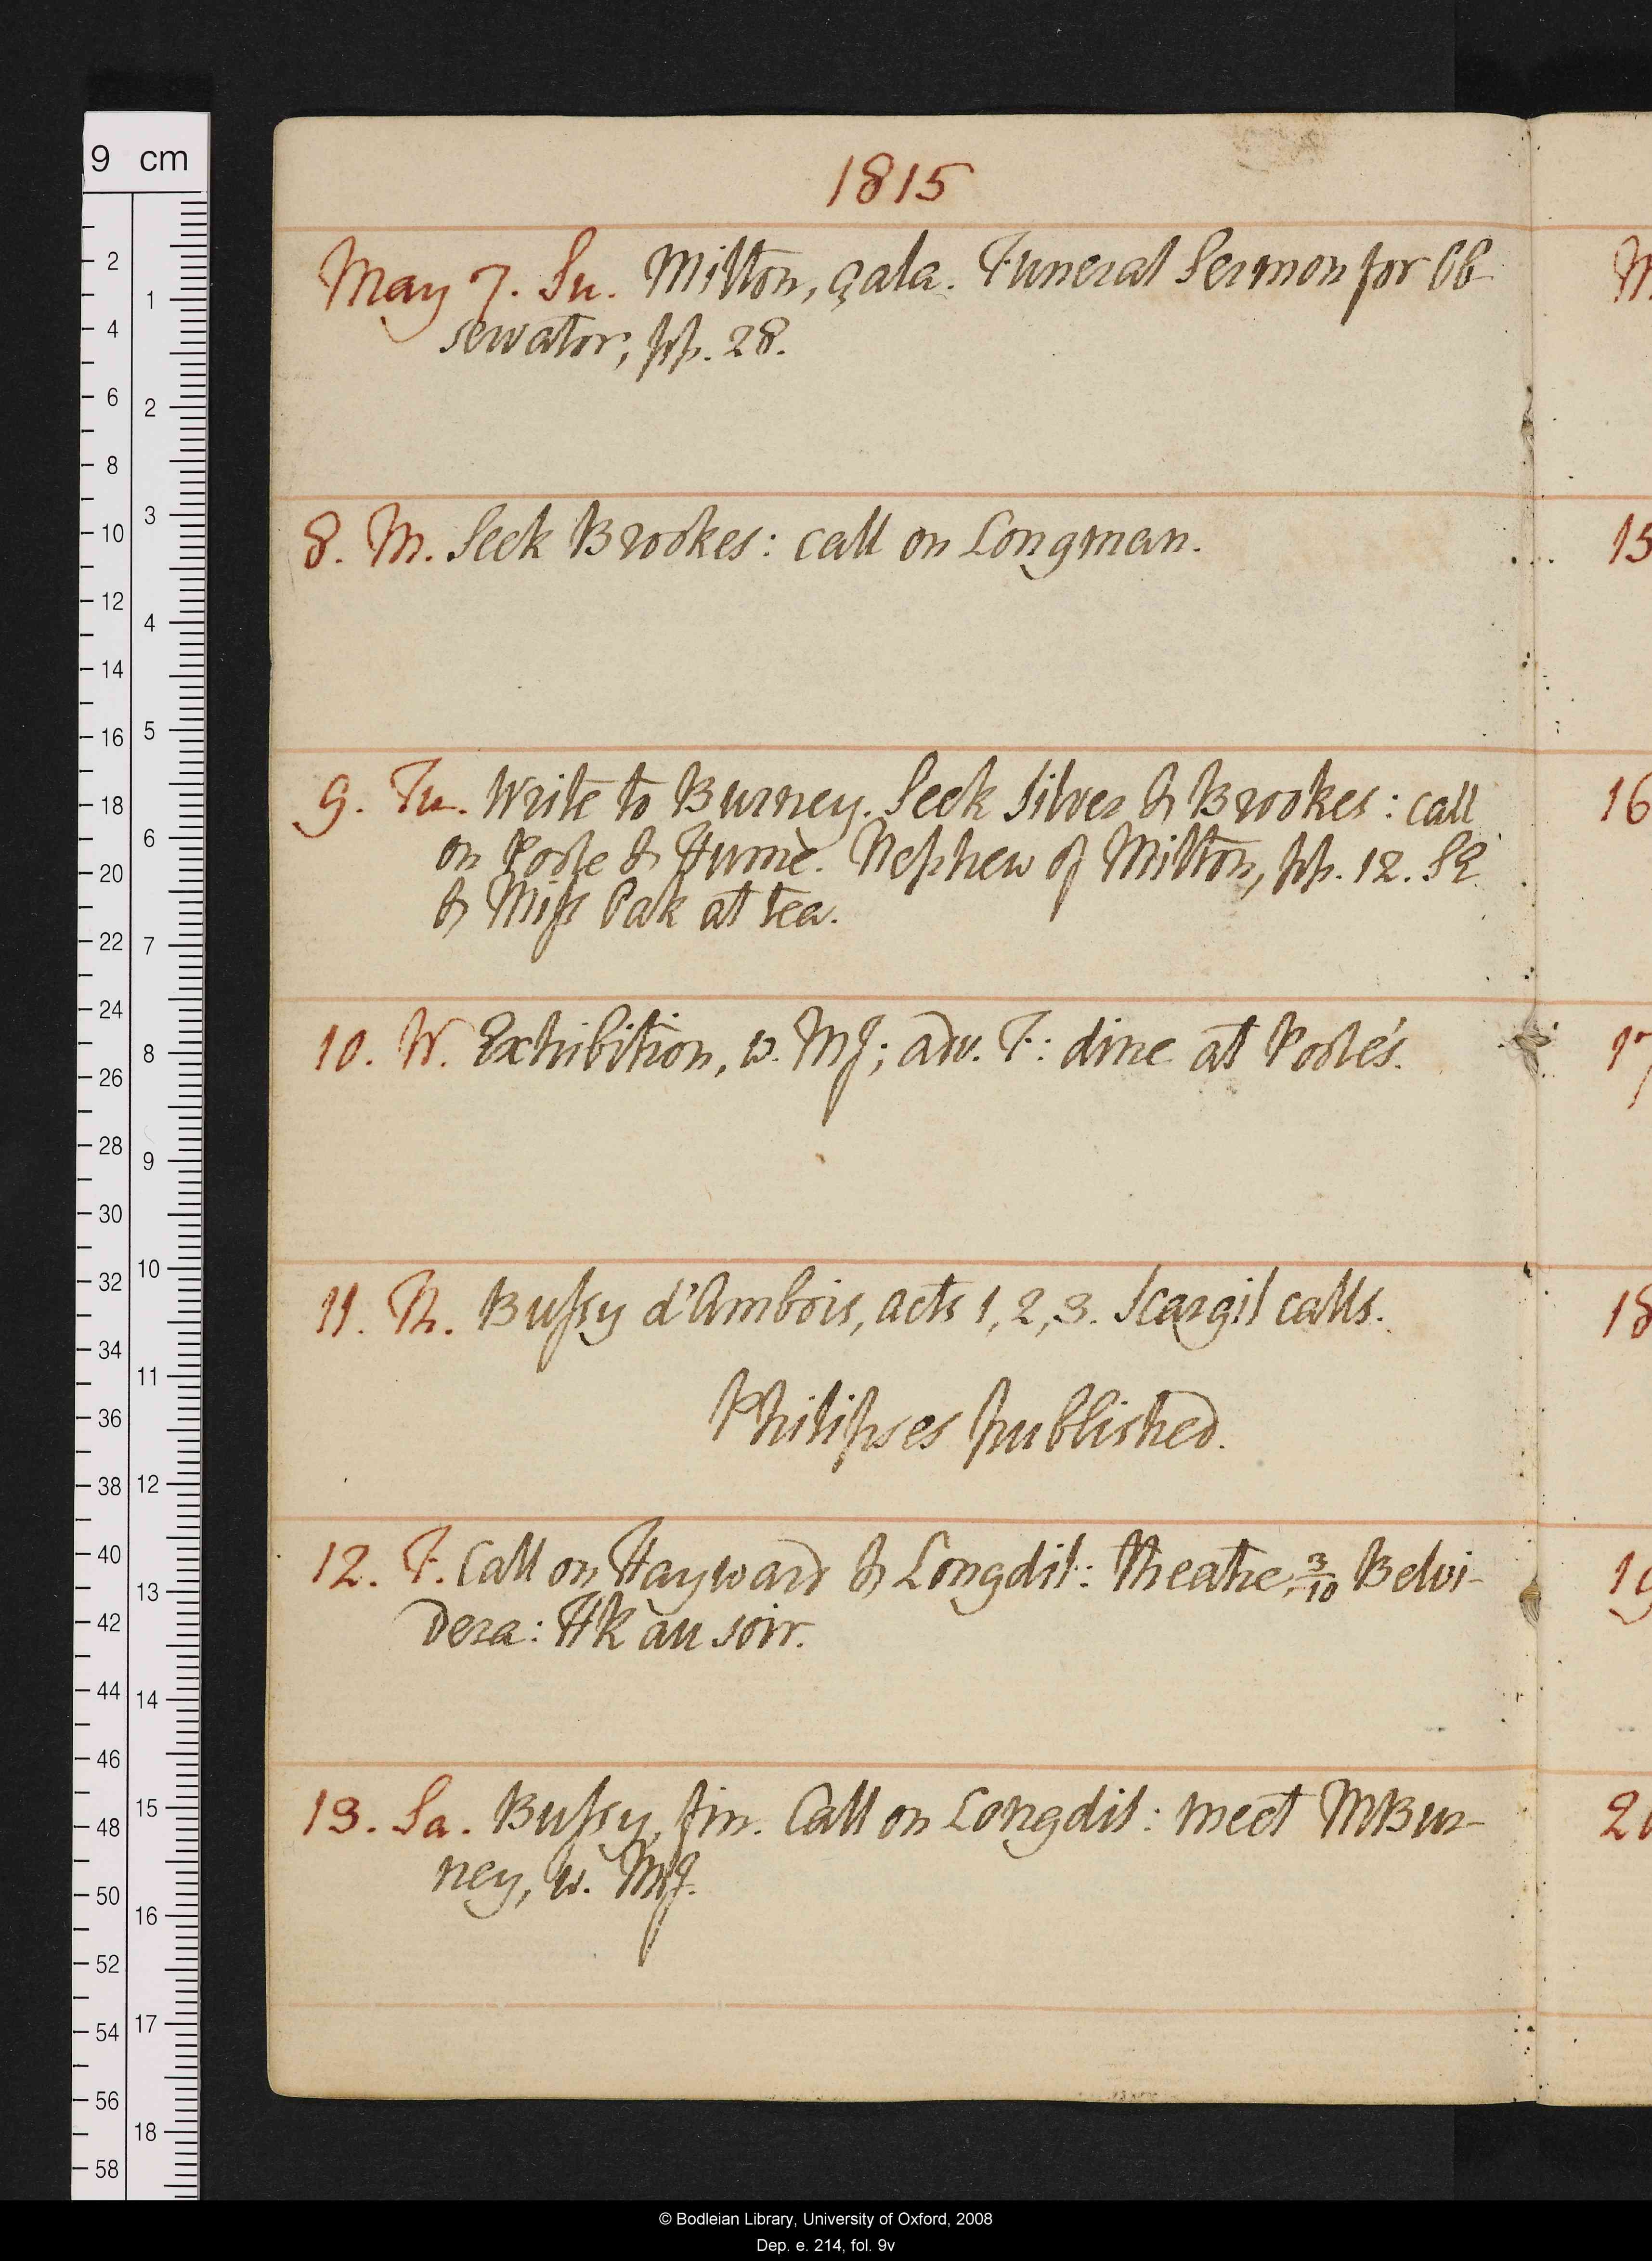 1815
May 7. Su. Milton, çala. Funeral Sermon for Ob-
servator, pp. 28.
8. M. Seek Brookes: call on Longman.
9. Tu. Write to Burney. Seek Silver & Brookes: call
on Poole & Hume. Nephew of Milton, pp. 12.
& Miss Oak at tea.
10. W. Exhibition, w. MJ; adv. F: dine at Poole's.
11. Th. Bussy d'Ambois, acts 1, 2, 3. Scargil calls.
Philipses published.
12. F. Call on Hayward & Longdil: theatre, 3/10 Belvi-
dera: HR au soir.
13. Sa. Bussy, fin. Call on Longdil: meet MBur-
ney, w. MJ.
M
15
16
17
18
19
20
9 cm
2 4 6 8 10 12 14 16 18 20 22 24 26 28 30 32 34 36 38 40 42 44 46 48 50 52 54 56 58
1 2 3 4 5 6 7 8 9 10 11 12 13 14 15 16 17 18
© Bodleian Library, University of Oxford, 2008
Dep. e. 214, fol. 9v